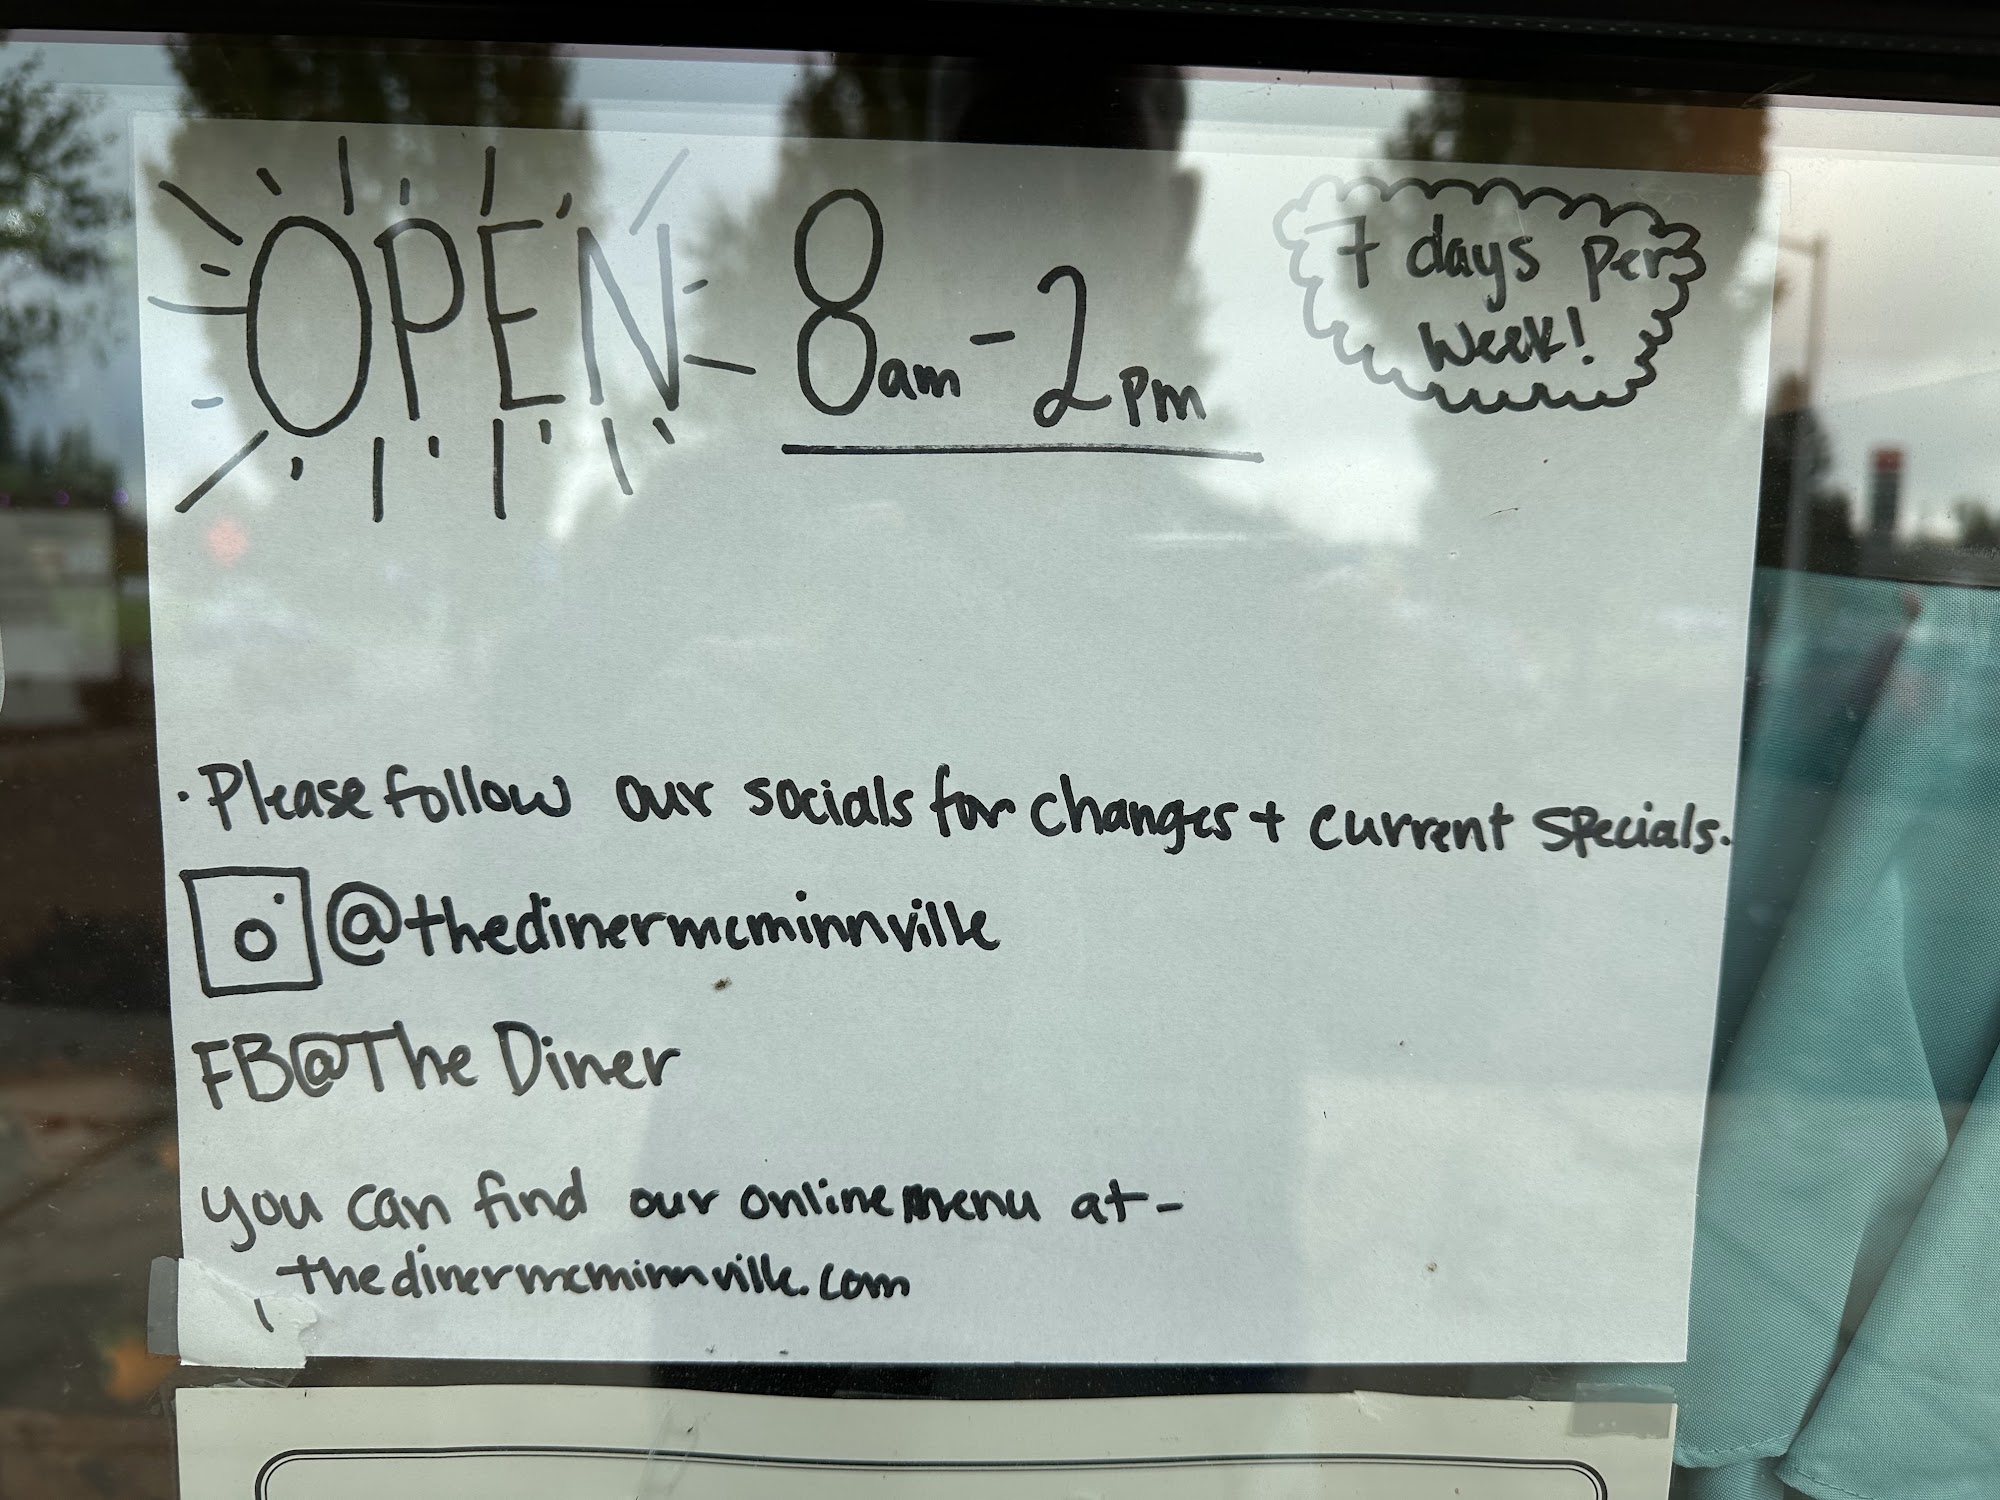 OPEN 8am - 2pm
7 days per
week!
· Please follow our socials for changes + current specials.
@thedinermcminnville
FB@The Diner
you can find our online menu at -
thedinermcminnville.com